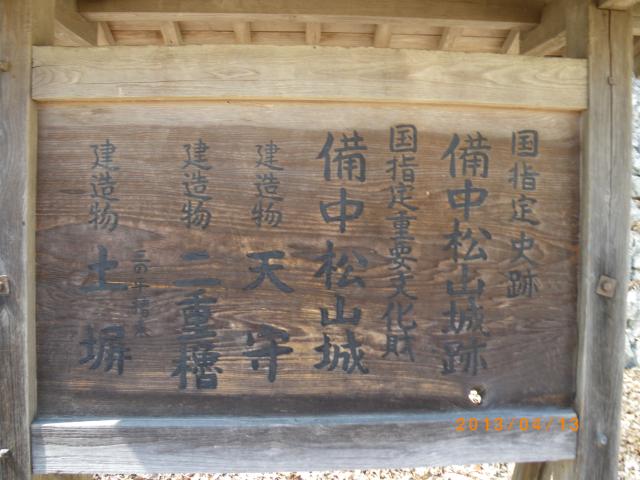 国指定史跡
備中松山城跡
国指定重要文化財
備中松山城
建造物 天守
建造物 二重櫓
三の平櫓東
建造物 土塀
2013/04/13